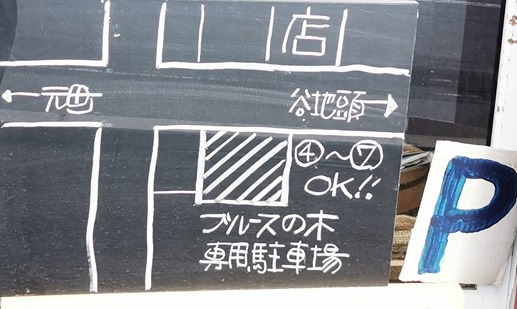 店
←元町
谷地頭→
④〜⑦
OK!!
ブルースの木
専用駐車場
P